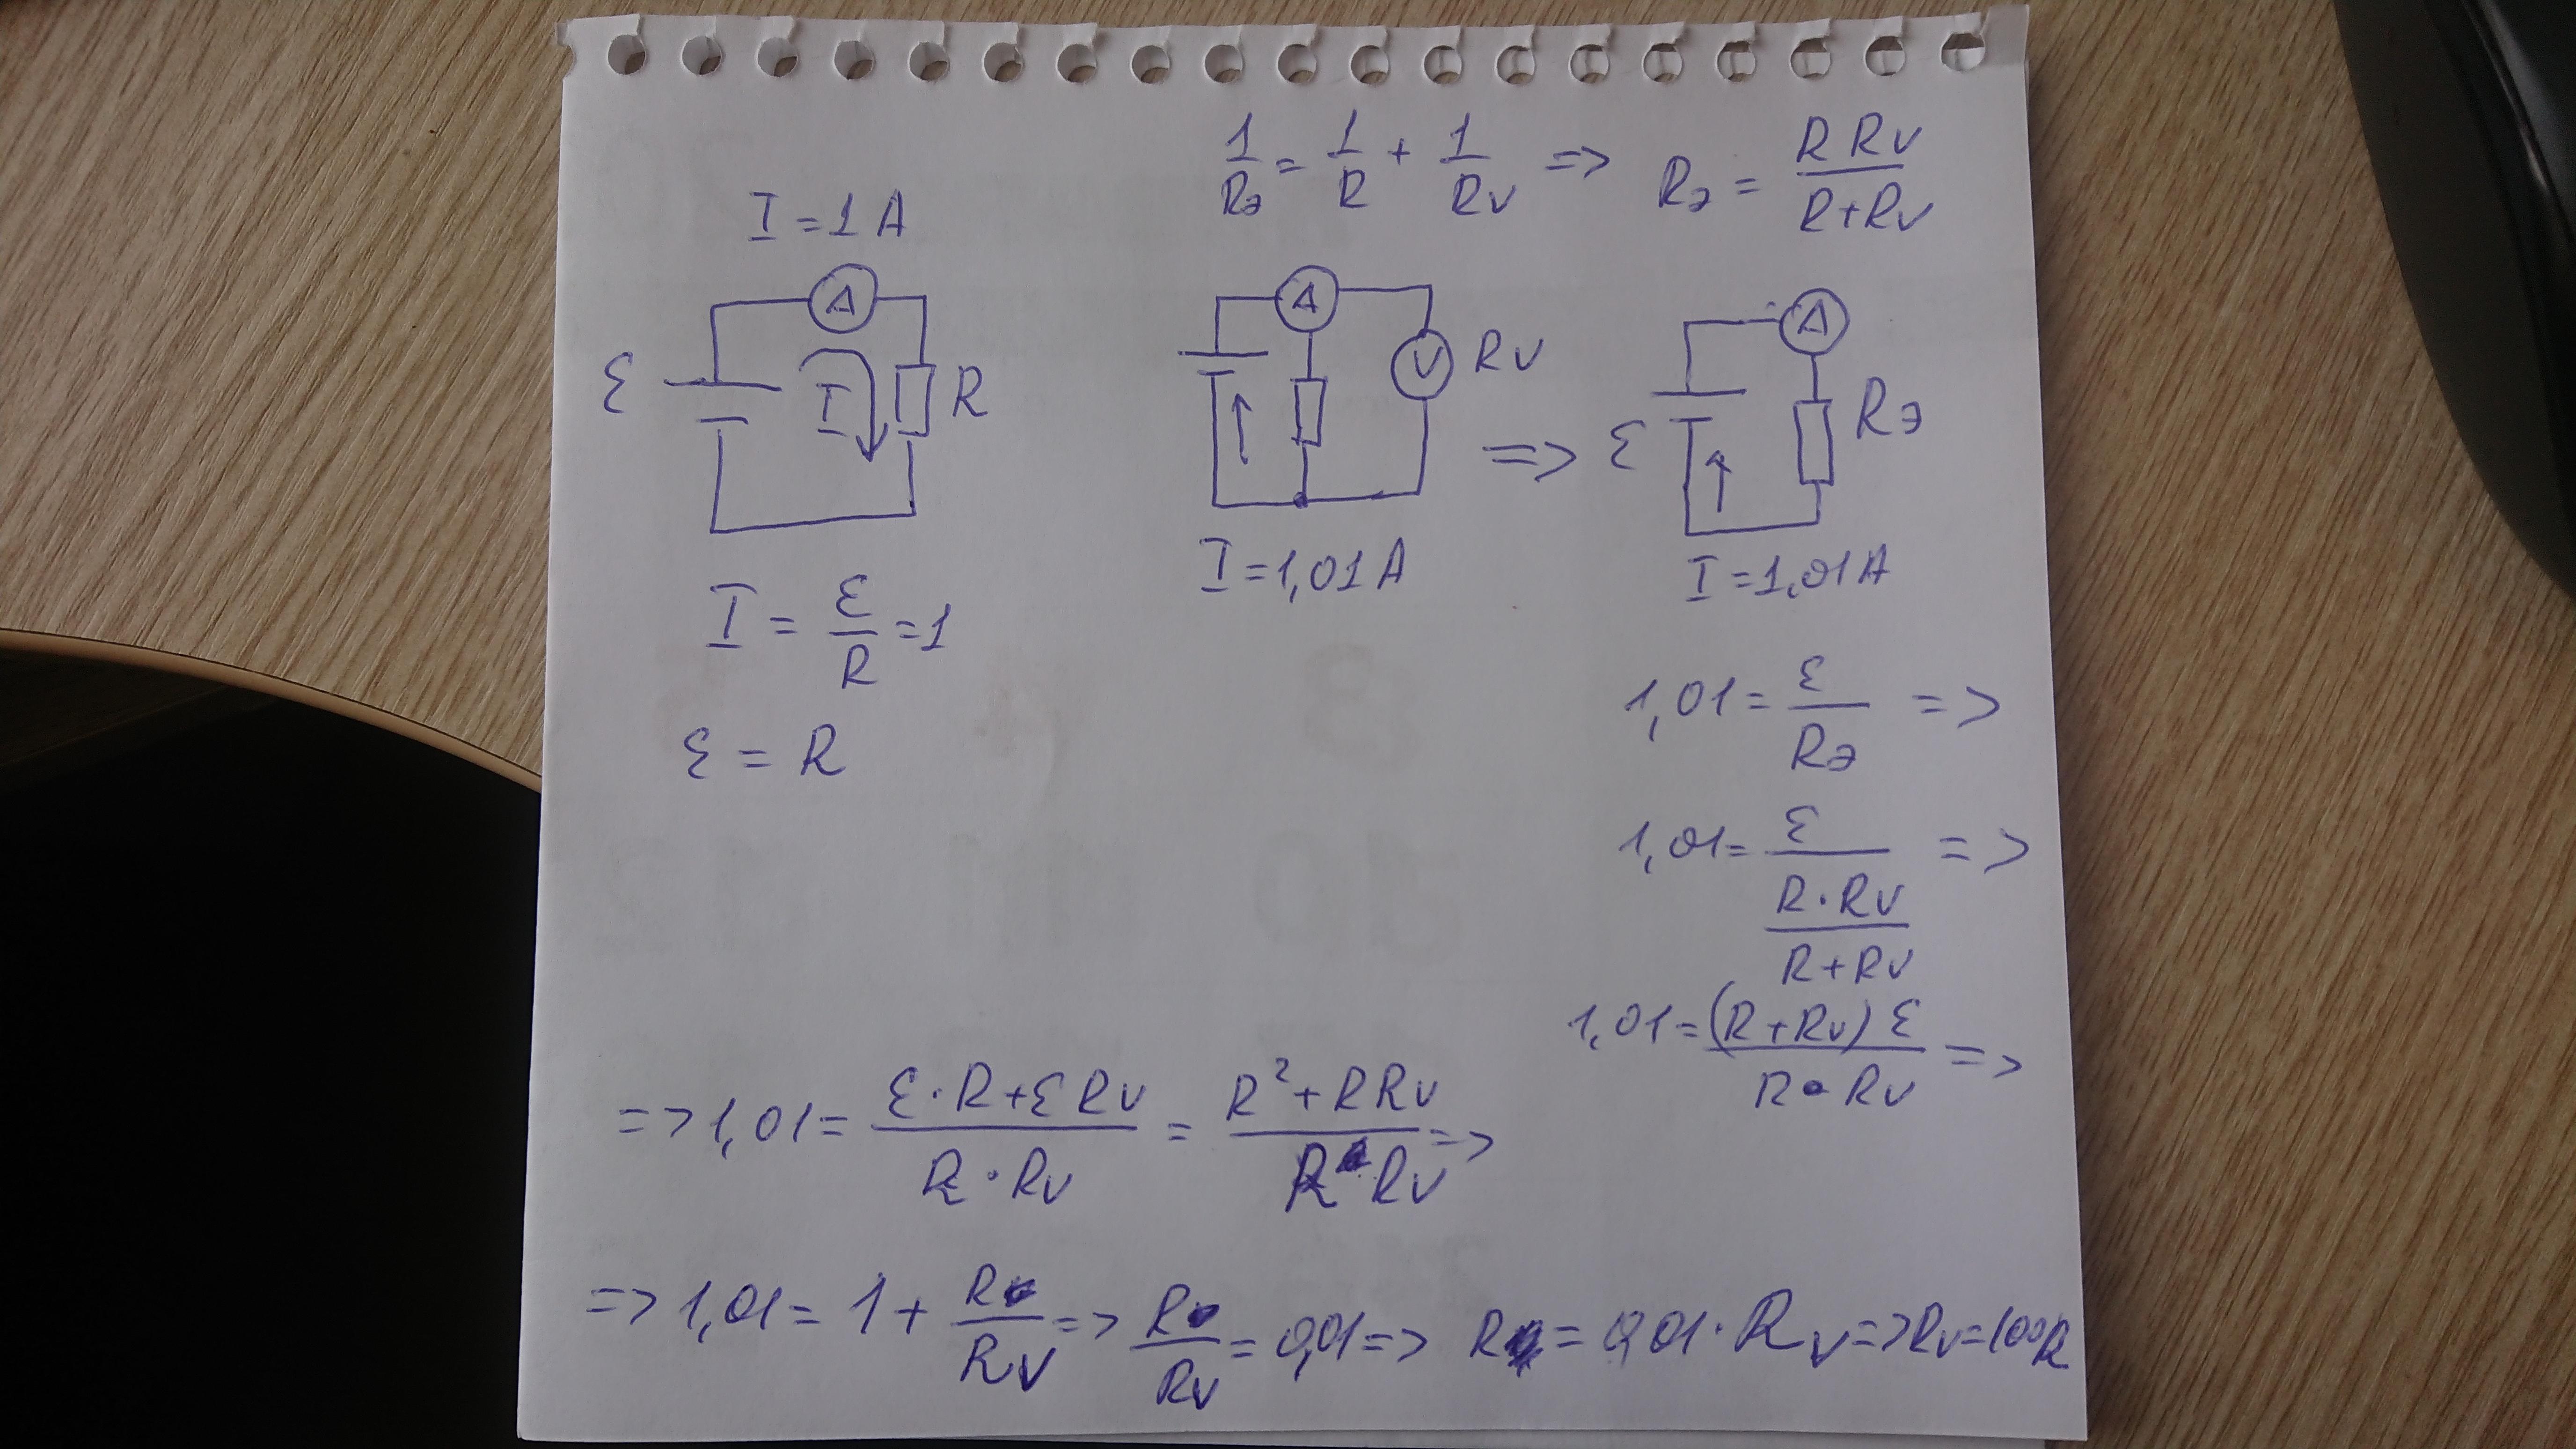 1/Rэ = 1/R + 1/Rv => Rэ = R Rv / R+Rv
I = 1 A
A
ε
I
R
A
V
Rv
=>
A
ε
Rэ
I = 1,01 A
I = 1,01 A
I = ε/R = 1
ε = R
1,01 = ε/Rэ =>
1,01 = ε / (R·Rv / R+Rv) =>
1,01 = (R+Rv) ε / R·Rv =>
=> 1,01 = ε·R+ε Rv / R·Rv = R²+RRv / R Rv =>
=> 1,01 = 1 + R/Rv => R/Rv = 0,01 => R = 0,01·Rv => Rv=100R